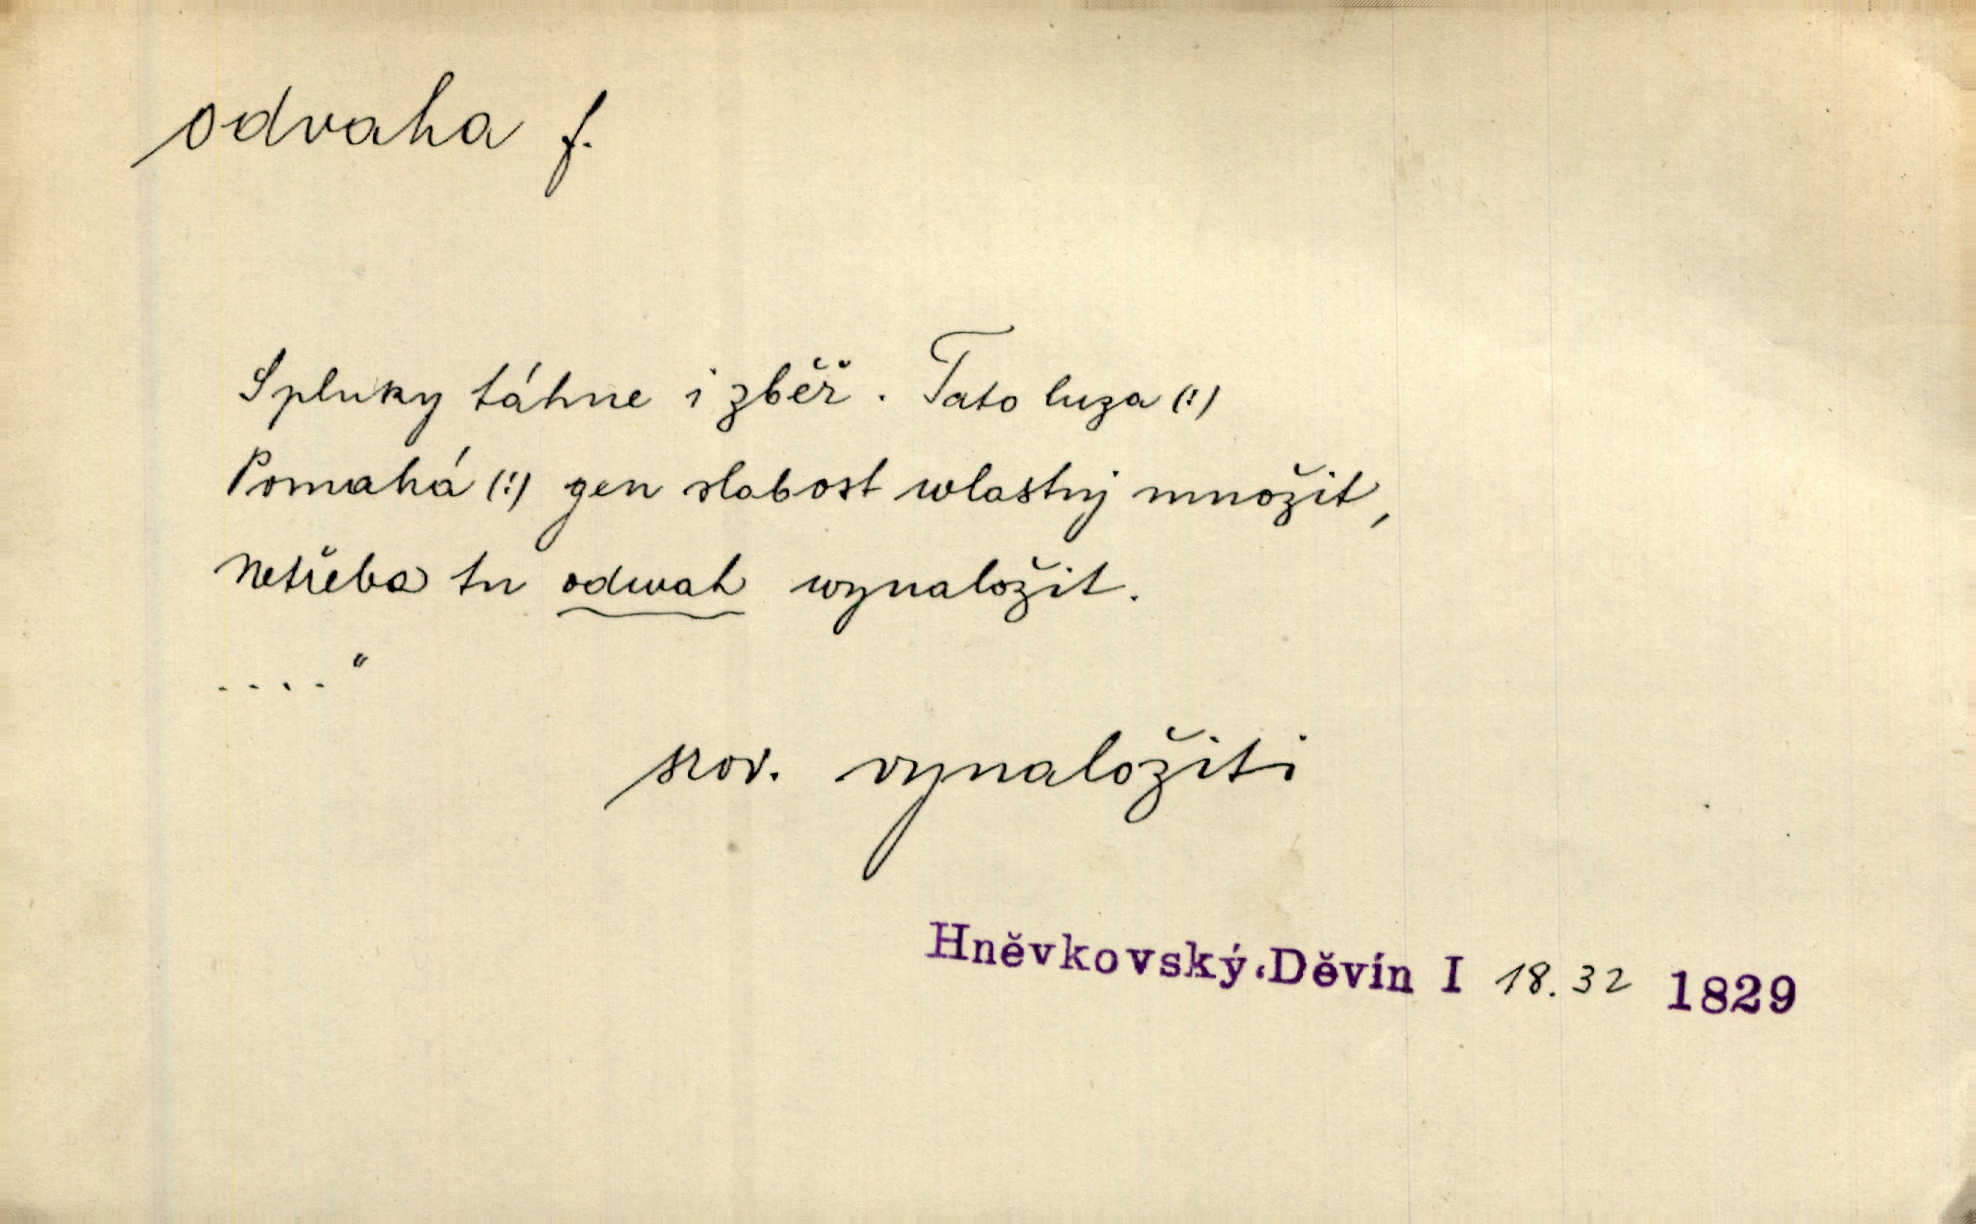 odvaha f.
S pluky táhne i zběř. Tato luza (!)
Pomahá (!) gen slabost wlastnj množit,
Netřeba tu odwah wynaložit.
...."
srov. vynaložiti
Hněvkovský, Děvín I 18.32 1829